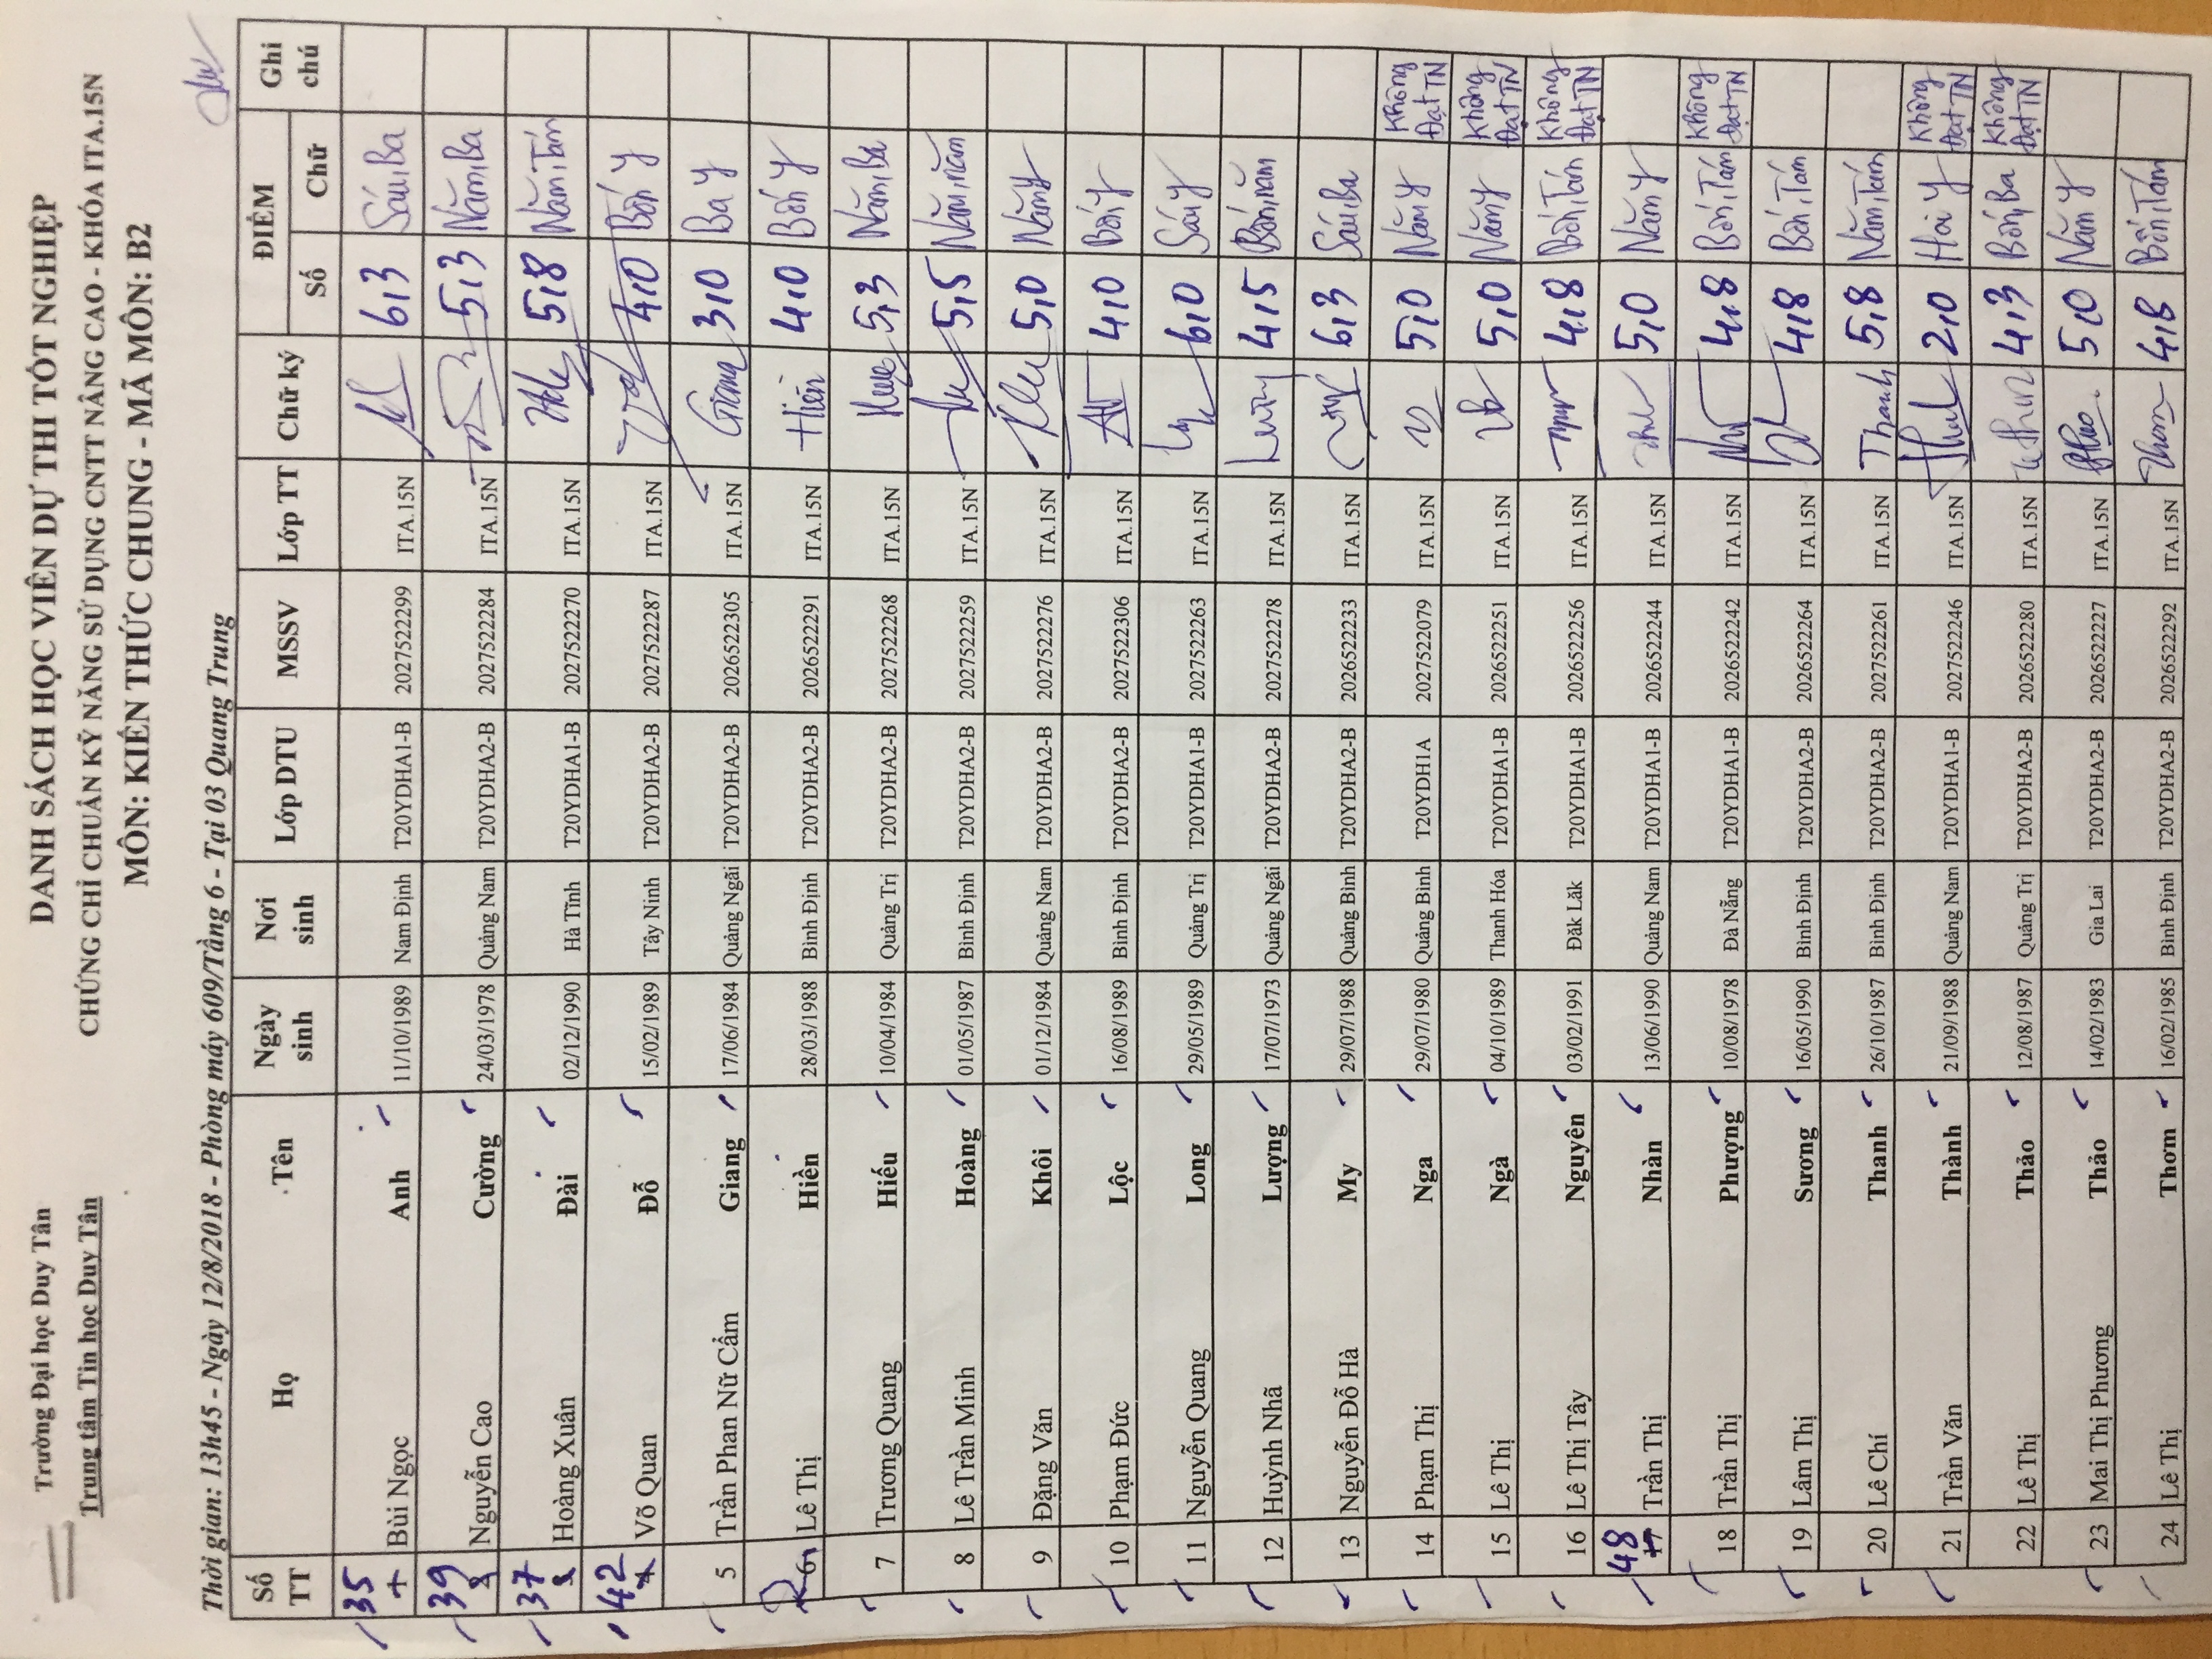 Trường Đại học Duy Tân
Trung tâm Tin học Duy Tân
DANH SÁCH HỌC VIÊN DỰ THI TỐT NGHIỆP
CHỨNG CHỈ CHUẨN KỸ NĂNG SỬ DỤNG CNTT NÂNG CAO - KHÓA ITA.15N
MÔN: KIẾN THỨC CHUNG - MÃ MÔN: B2
Thời gian: 13h45 - Ngày 12/8/2018 - Phòng máy 609/Tầng 6 - Tại 03 Quang Trung
Số TT Họ Tên Ngày sinh Nơi sinh Lớp DTU MSSV Lớp TT Chữ ký ĐIỂM Số Chữ Ghi chú
35 1 Bùi Ngọc Anh 11/10/1989 Nam Định T20YDHA1-B 2027522299 ITA.15N 6,3 Sáu,Ba
39 2 Nguyễn Cao Cường 24/03/1978 Quảng Nam T20YDHA2-B 2027522284 ITA.15N 5,3 Năm,Ba
37 3 Hoàng Xuân Đài 02/12/1990 Hà Tĩnh T20YDHA1-B 2027522270 ITA.15N 5,8 Năm,Tám
42 4 Võ Quan Đỗ 15/02/1989 Tây Ninh T20YDHA2-B 2027522287 ITA.15N 4,0 Bốn y
5 Trần Phan Nữ Cẩm Giang 17/06/1984 Quảng Ngãi T20YDHA2-B 2026522305 ITA.15N Giang 3,0 Ba y
6 Lê Thị Hiền 28/03/1988 Bình Định T20YDHA2-B 2026522291 ITA.15N Hiền 4,0 Bốn y
7 Trương Quang Hiếu 10/04/1984 Quảng Trị T20YDHA2-B 2027522268 ITA.15N 5,3 Năm,Ba
8 Lê Trần Minh Hoàng 01/05/1987 Bình Định T20YDHA2-B 2027522259 ITA.15N 5,5 Năm,năm
9 Đặng Văn Khôi 01/12/1984 Quảng Nam T20YDHA2-B 2027522276 ITA.15N 5,0 Năm y
10 Phạm Đức Lộc 16/08/1989 Bình Định T20YDHA2-B 2027522306 ITA.15N 4,0 Bốn y
11 Nguyễn Quang Long 29/05/1989 Quảng Trị T20YDHA1-B 2027522263 ITA.15N 6,0 Sáu y
12 Huỳnh Nhã Lượng 17/07/1973 Quảng Ngãi T20YDHA2-B 2027522278 ITA.15N 4,5 Bốn,năm
13 Nguyễn Đỗ Hà My 29/07/1988 Quảng Bình T20YDHA2-B 2026522233 ITA.15N 6,3 Sáu,Ba
14 Phạm Thị Nga 29/07/1980 Quảng Bình T20YDH1A 2027522079 ITA.15N 5,0 Năm y Không Đạt TN
15 Lê Thị Ngà 04/10/1989 Thanh Hóa T20YDHA1-B 2026522251 ITA.15N 5,0 Năm y Không Đạt TN
16 Lê Thị Tây Nguyên 03/02/1991 Đăk Lăk T20YDHA1-B 2026522256 ITA.15N 4,8 Bốn,Tám Không Đạt TN
48 17 Trần Thị Nhàn 13/06/1990 Quảng Nam T20YDHA1-B 2026522244 ITA.15N 5,0 Năm y
18 Trần Thị Phượng 10/08/1978 Đà Nẵng T20YDHA1-B 2026522242 ITA.15N 4,8 Bốn,Tám Không Đạt TN
19 Lâm Thị Sương 16/05/1990 Bình Định T20YDHA2-B 2026522264 ITA.15N 4,8 Bốn,Tám
20 Lê Chí Thanh 26/10/1987 Bình Định T20YDHA2-B 2027522261 ITA.15N Thanh 5,8 Năm,Tám
21 Trần Văn Thành 21/09/1988 Quảng Nam T20YDHA1-B 2027522246 ITA.15N 2,0 Hai y Không Đạt TN
22 Lê Thị Thảo 12/08/1987 Quảng Trị T20YDHA2-B 2026522280 ITA.15N 4,3 Bốn,Ba Không Đạt TN
23 Mai Thị Phương Thảo 14/02/1983 Gia Lai T20YDHA2-B 2026522227 ITA.15N 5,0 Năm y
24 Lê Thị Thơm 16/02/1985 Bình Định T20YDHA2-B 2026522292 ITA.15N Thơm 4,8 Bốn,Tám